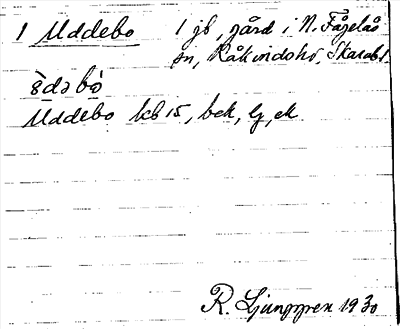 1 Uddebo 1 jb, gård i N. Fågelås
sn, Kåkindshd, Skarabl
ɷ̀dəbò
Uddebo kb 15, bek, Lj, ek
R. Ljunggren 1930